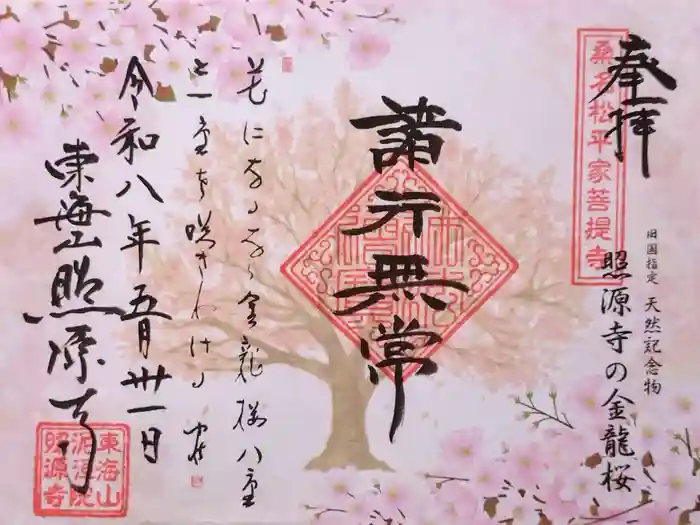 奉拝
桑名松平家菩提寺
旧国指定 天然記念物
照源寺の金龍桜
諸行無常
花になるなら金龍桜八重
も一重も咲きわける
令和八年五月卅一日
東海山照源寺
東海山
照源寺